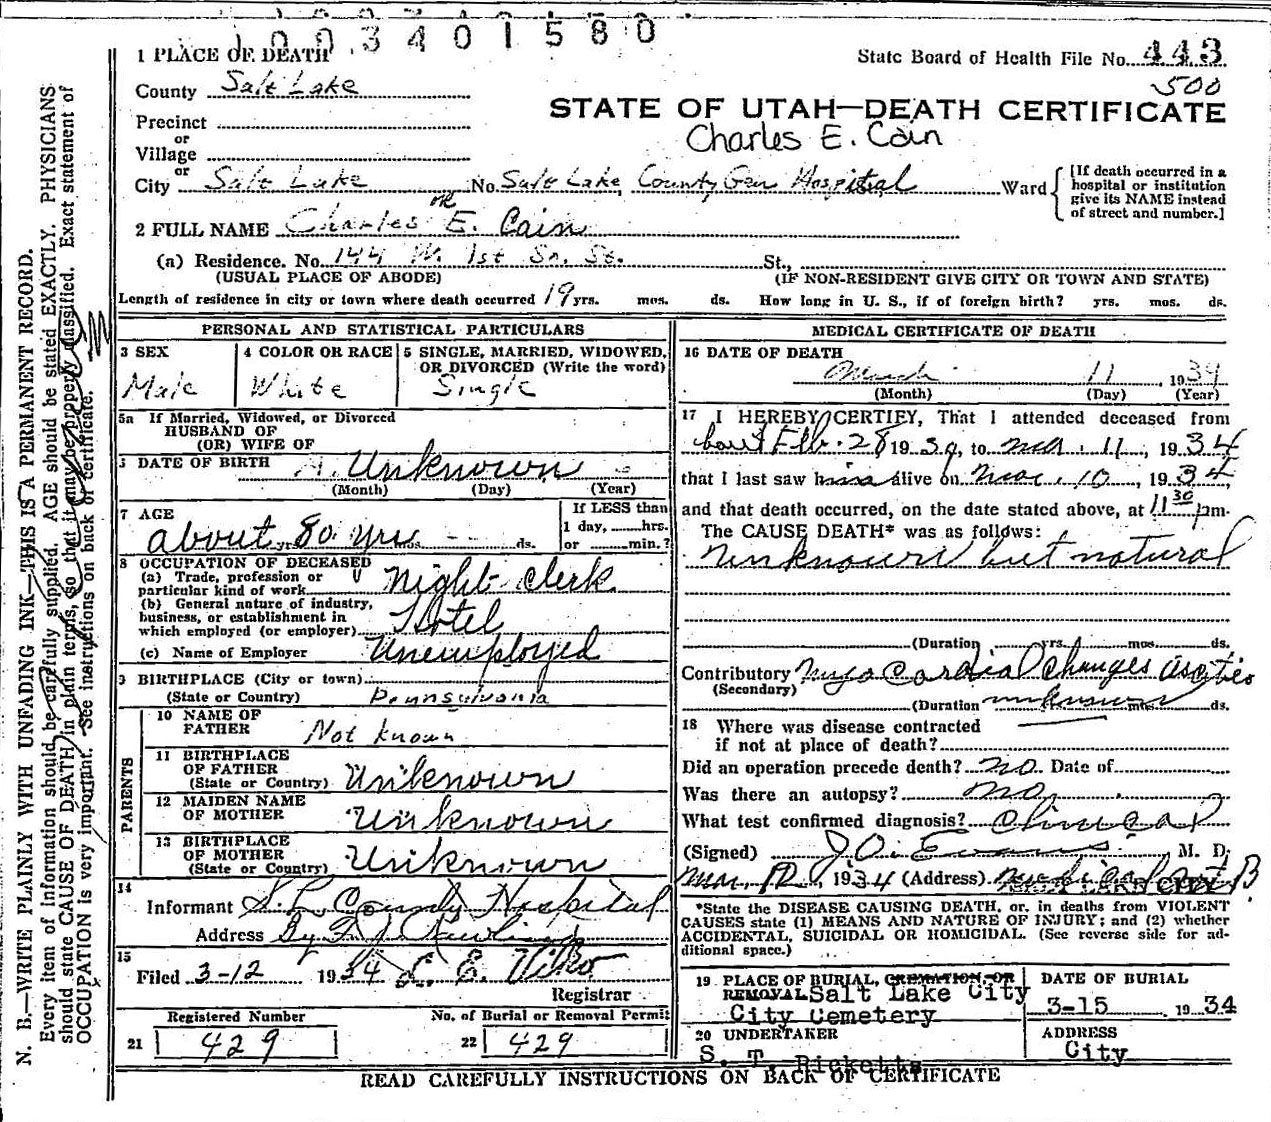 1003401580
1 PLACE OF DEATH
State Board of Health File No. 443
500
County Salt Lake
STATE OF UTAH—DEATH CERTIFICATE
Precinct
or
Village
Charles E. Cain
or
City Salt Lake No. Salt Lake County Gen Hospital Ward
[If death occurred in a hospital or institution give its NAME instead of street and number.]
OR
2 FULL NAME Charles E. Cain
(a) Residence. No. 144 W. 1st So. St. St.,
(USUAL PLACE OF ABODE) (IF NON-RESIDENT GIVE CITY OR TOWN AND STATE)
Length of residence in city or town where death occurred 19 yrs. mos. ds. How long in U. S., if of foreign birth? yrs. mos. ds.
PERSONAL AND STATISTICAL PARTICULARS
3 SEX
Male
4 COLOR OR RACE
White
5 SINGLE, MARRIED, WIDOWED, OR DIVORCED (Write the word)
Single
5a If Married, Widowed, or Divorced
HUSBAND OF
(OR) WIFE OF
DATE OF BIRTH Unknown
(Month) (Day) (Year)
7 AGE
about 80 yrs mos. ds.
If LESS than
1 day, hrs.
or min.?
8 OCCUPATION OF DECEASED
(a) Trade, profession or
particular kind of work night clerk
(b) General nature of industry,
business, or establishment in
which employed (or employer) Hotel
(c) Name of Employer Unemployed
9 BIRTHPLACE (City or town)
(State or Country) Pennsylvania
PARENTS
10 NAME OF
FATHER Not known
11 BIRTHPLACE
OF FATHER
(State or Country) Unknown
12 MAIDEN NAME
OF MOTHER Unknown
13 BIRTHPLACE
OF MOTHER
(State or Country) Unknown
14
Informant S. L. County Hospital
Address By
15
Filed 3-12 1934
Registrar
Registered Number
21 429
No. of Burial or Removal Permit
22 429
MEDICAL CERTIFICATE OF DEATH
16 DATE OF DEATH
March 11, 1934
(Month) (Day) (Year)
17 I HEREBY CERTIFY, That I attended deceased from
Feb. 28 1934, to Mar. 11, 1934
that I last saw him alive on Mar. 10, 1934,
and that death occurred, on the date stated above, at 11 30 pm.
The CAUSE DEATH* was as follows:
unknown but natural
(Duration yrs. mos. ds.
Contributory Myocardial changes ascites
(Secondary)
(Duration unknown mos. ds.
18 Where was disease contracted
if not at place of death?
Did an operation precede death? no Date of
Was there an autopsy? no
What test confirmed diagnosis? clinical
(Signed) J. O. Evans M. D.
Mar 12, 1934 (Address)
*State the DISEASE CAUSING DEATH, or, in deaths from VIOLENT
CAUSES state (1) MEANS AND NATURE OF INJURY; and (2) whether
ACCIDENTAL, SUICIDAL OR HOMICIDAL. (See reverse side for ad-
ditional space.)
19 PLACE OF BURIAL, CREMATION, OR
REMOVAL Salt Lake City
City Cemetery
DATE OF BURIAL
3-15 1934
20 UNDERTAKER
S. T. Ricketts
ADDRESS
City
READ CAREFULLY INSTRUCTIONS ON BACK OF CERTIFICATE
N. B.—WRITE PLAINLY WITH UNFADING INK—THIS IS A PERMANENT RECORD.
Every item of information should be carefully supplied. AGE should be stated EXACTLY. PHYSICIANS
should state CAUSE OF DEATH in plain terms, so that it may be properly classified. Exact statement of
OCCUPATION is very important. See instructions on back of certificate.